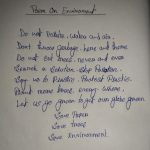 Poem On Environment
Do not Pollute, water and air,
Don't throw garbage, here and there
Do not cut trees, never and ever
Search a solution - Stop Pollution.
Say no to Plastic - Protest Plastic.
Plant more trees, every where,
Let us go green to get our globe green
Save Paper
Save trees
Save Environment